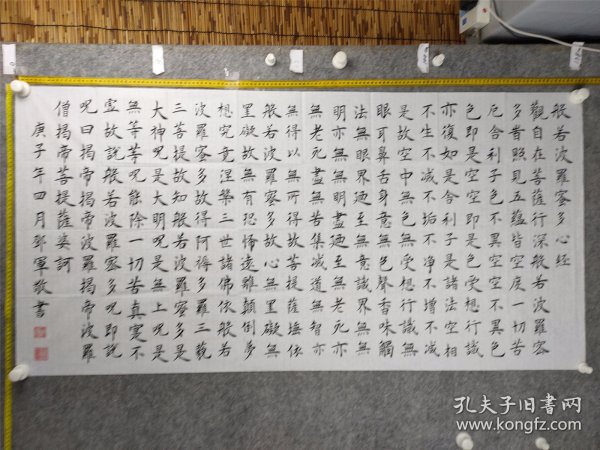 般若波羅蜜多心経
觀自在菩薩行深般若波羅蜜
多旹照見五蘊皆空度一切苦
厄舍利子色不異空空不異色
色即是空空即是色受想行識
亦復如是舍利子是諸法空相
不生不滅不垢不净不增不减
是故空中無色無受想行識無
眼耳鼻舌身意無色聲香味觸
法無眼界廼至無意識界無無
明亦無無明盡廼至無老死亦
無老死盡無苦集滅道無智亦
無得以無所得故菩提薩埵依
般若波羅蜜多故心無罣礙無
罣礙故無有恐怖遠離顛倒夢
想究竟涅槃三世諸佛依般若
波羅蜜多故得阿耨多羅三藐
三菩提故知般若波羅蜜多是
大神呪是大明呪是無上呪是
無等等呪能除一切苦真實不
虛故說般若波羅蜜多呪即說
呪曰揭帝揭帝波羅揭帝波羅
僧揭帝菩提薩婆訶
庚子年四月郭軍敬書
孔夫子旧書网
www.kongfz.com